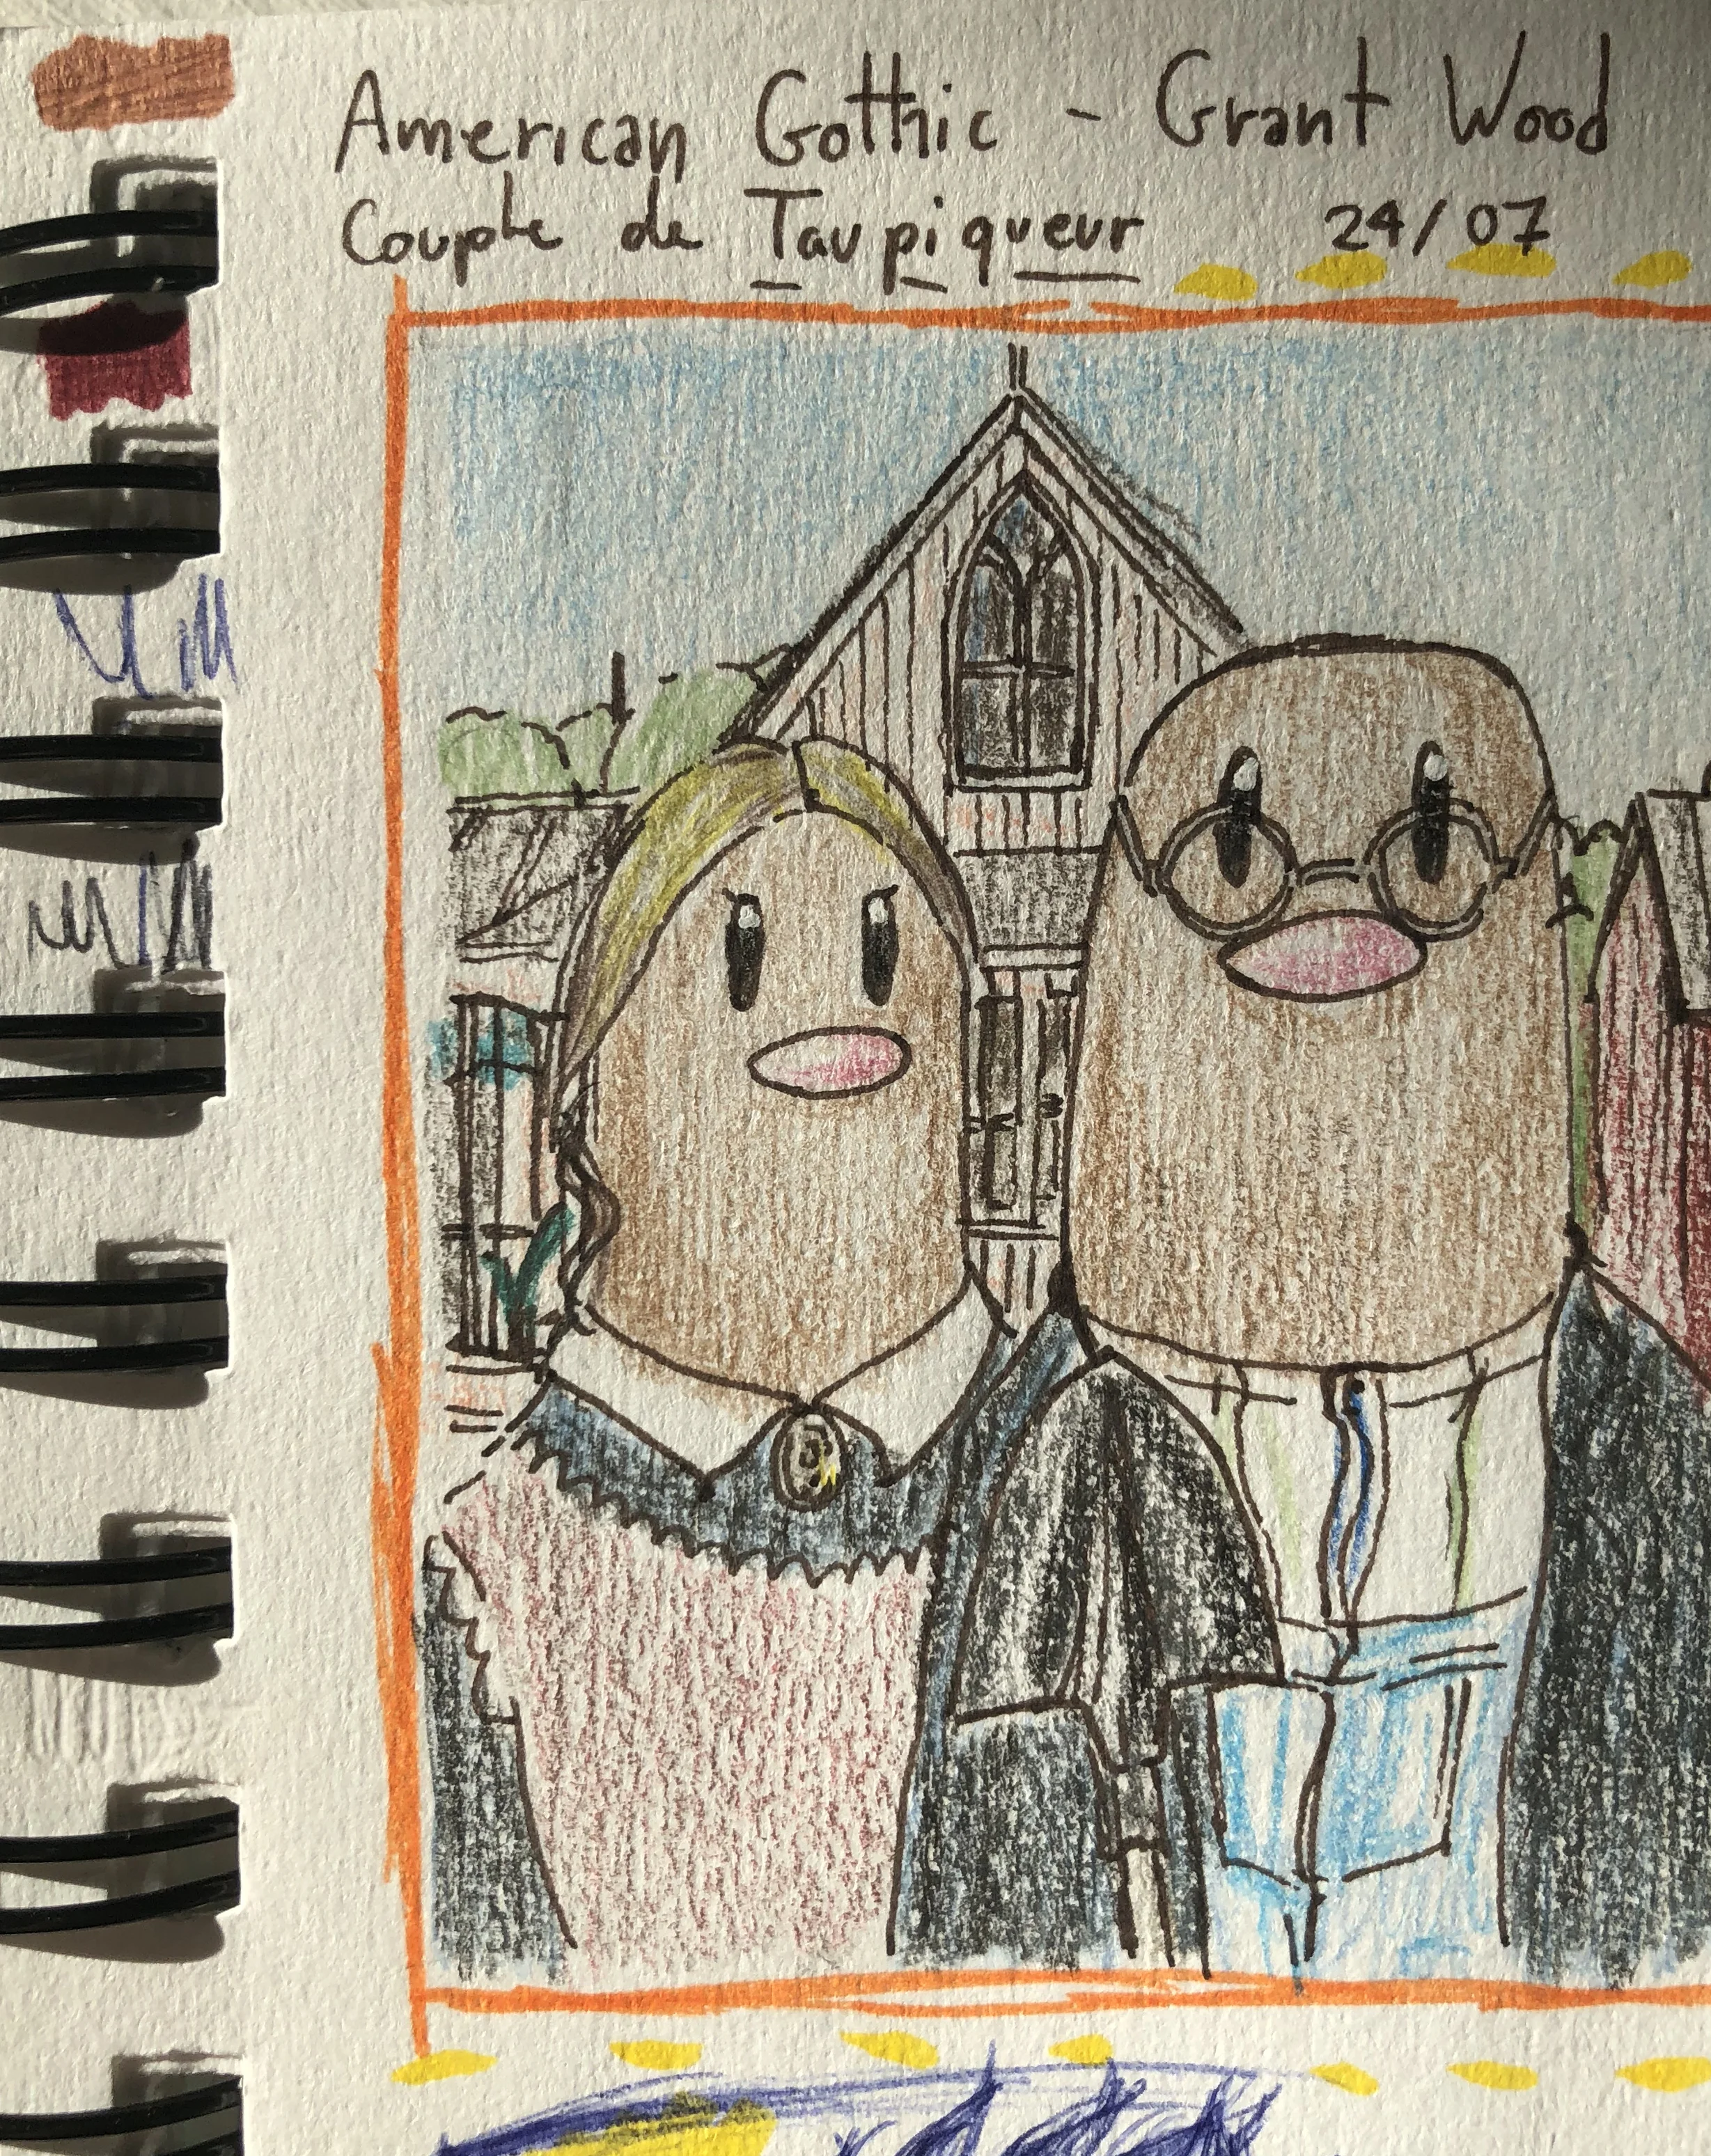 American Gothic - Grant Wood
Couple de Taupiqueur 24/07